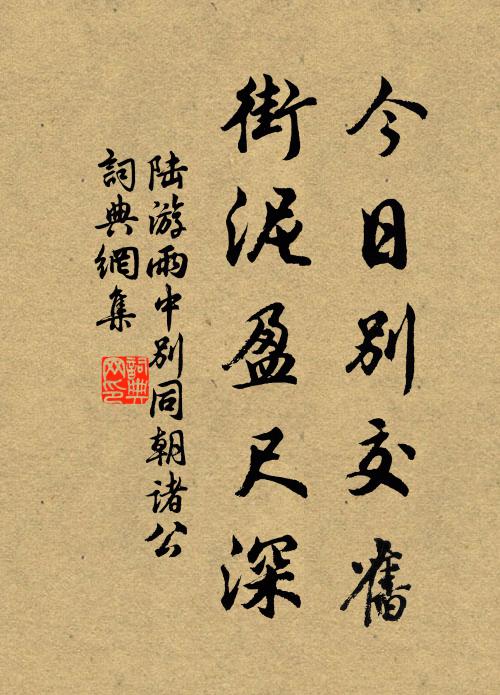 今日別交舊
街泥盈尺深
陆游雨中別同朝诸公
詞典網集
詞典网印